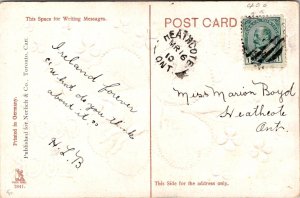 400
This Space for Writing Messages.
POST CARD
HEATHCOTE
MR 16
10
ONT
Ireland forever
what do you think
about it
H.L.B
Miss Marion Boyd
Heathcote
Ont.
Printed in Germany.
Published for Nerlich & Co. Toronto, Can.
This Side for the address only.